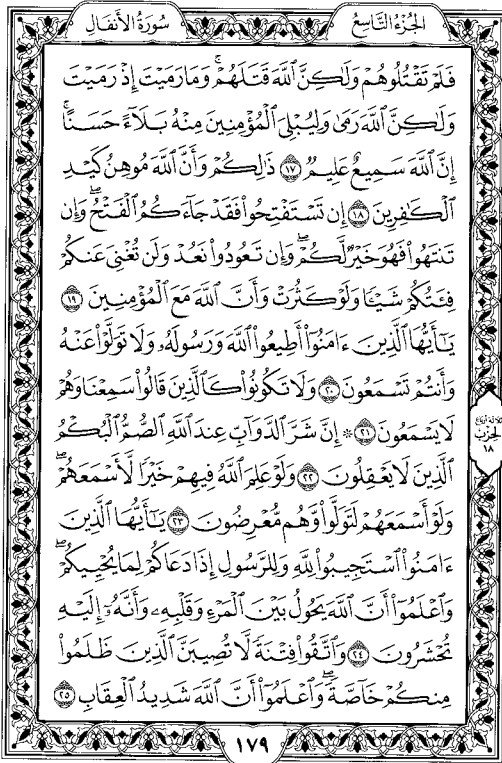 الجُزْءُ التَّاسِعُ
سُورَةُ الأَنفَالِ
فَلَمْ تَقْتُلُوهُمْ وَلَٰكِنَّ ٱللَّهَ قَتَلَهُمْ ۚ وَمَا رَمَيْتَ إِذْ رَمَيْتَ
وَلَٰكِنَّ ٱللَّهَ رَمَىٰ وَلِيُبْلِيَ ٱلْمُؤْمِنِينَ مِنْهُ بَلَآءً حَسَنًا ۚ
إِنَّ ٱللَّهَ سَمِيعٌ عَلِيمٌ ١٧ ذَٰلِكُمْ وَأَنَّ ٱللَّهَ مُوهِنُ كَيْدِ
ٱلْكَٰفِرِينَ ١٨ إِن تَسْتَفْتِحُوا۟ فَقَدْ جَآءَكُمُ ٱلْفَتْحُ ۖ وَإِن
تَنتَهُوا۟ فَهُوَ خَيْرٌ لَّكُمْ ۖ وَإِن تَعُودُوا۟ نَعُدْ وَلَن تُغْنِيَ عَنكُمْ
فِئَتُكُمْ شَيْـًٔا وَلَوْ كَثُرَتْ وَأَنَّ ٱللَّهَ مَعَ ٱلْمُؤْمِنِينَ ١٩
يَٰٓأَيُّهَا ٱلَّذِينَ ءَامَنُوٓا۟ أَطِيعُوا۟ ٱللَّهَ وَرَسُولَهُۥ وَلَا تَوَلَّوْا۟ عَنْهُ
وَأَنتُمْ تَسْمَعُونَ ٢٠ وَلَا تَكُونُوا۟ كَٱلَّذِينَ قَالُوا۟ سَمِعْنَا وَهُمْ
لَا يَسْمَعُونَ ٢١ ۞ إِنَّ شَرَّ ٱلدَّوَآبِّ عِندَ ٱللَّهِ ٱلصُّمُّ ٱلْبُكْمُ
ٱلَّذِينَ لَا يَعْقِلُونَ ٢٢ وَلَوْ عَلِمَ ٱللَّهُ فِيهِمْ خَيْرًا لَّأَسْمَعَهُمْ ۖ
وَلَوْ أَسْمَعَهُمْ لَتَوَلَّوا۟ وَّهُم مُّعْرِضُونَ ٢٣ يَٰٓأَيُّهَا ٱلَّذِينَ
ءَامَنُوا۟ ٱسْتَجِيبُوا۟ لِلَّهِ وَلِلرَّسُولِ إِذَا دَعَاكُمْ لِمَا يُحْيِيكُمْ ۖ
وَٱعْلَمُوٓا۟ أَنَّ ٱللَّهَ يَحُولُ بَيْنَ ٱلْمَرْءِ وَقَلْبِهِۦ وَأَنَّهُۥٓ إِلَيْهِ
تُحْشَرُونَ ٢٤ وَٱتَّقُوا۟ فِتْنَةً لَّا تُصِيبَنَّ ٱلَّذِينَ ظَلَمُوا۟
مِنكُمْ خَآصَّةً ۖ وَٱعْلَمُوٓا۟ أَنَّ ٱللَّهَ شَدِيدُ ٱلْعِقَابِ ٢٥
ثلاثة أرباع
الحِزب
١٨
١٧٩